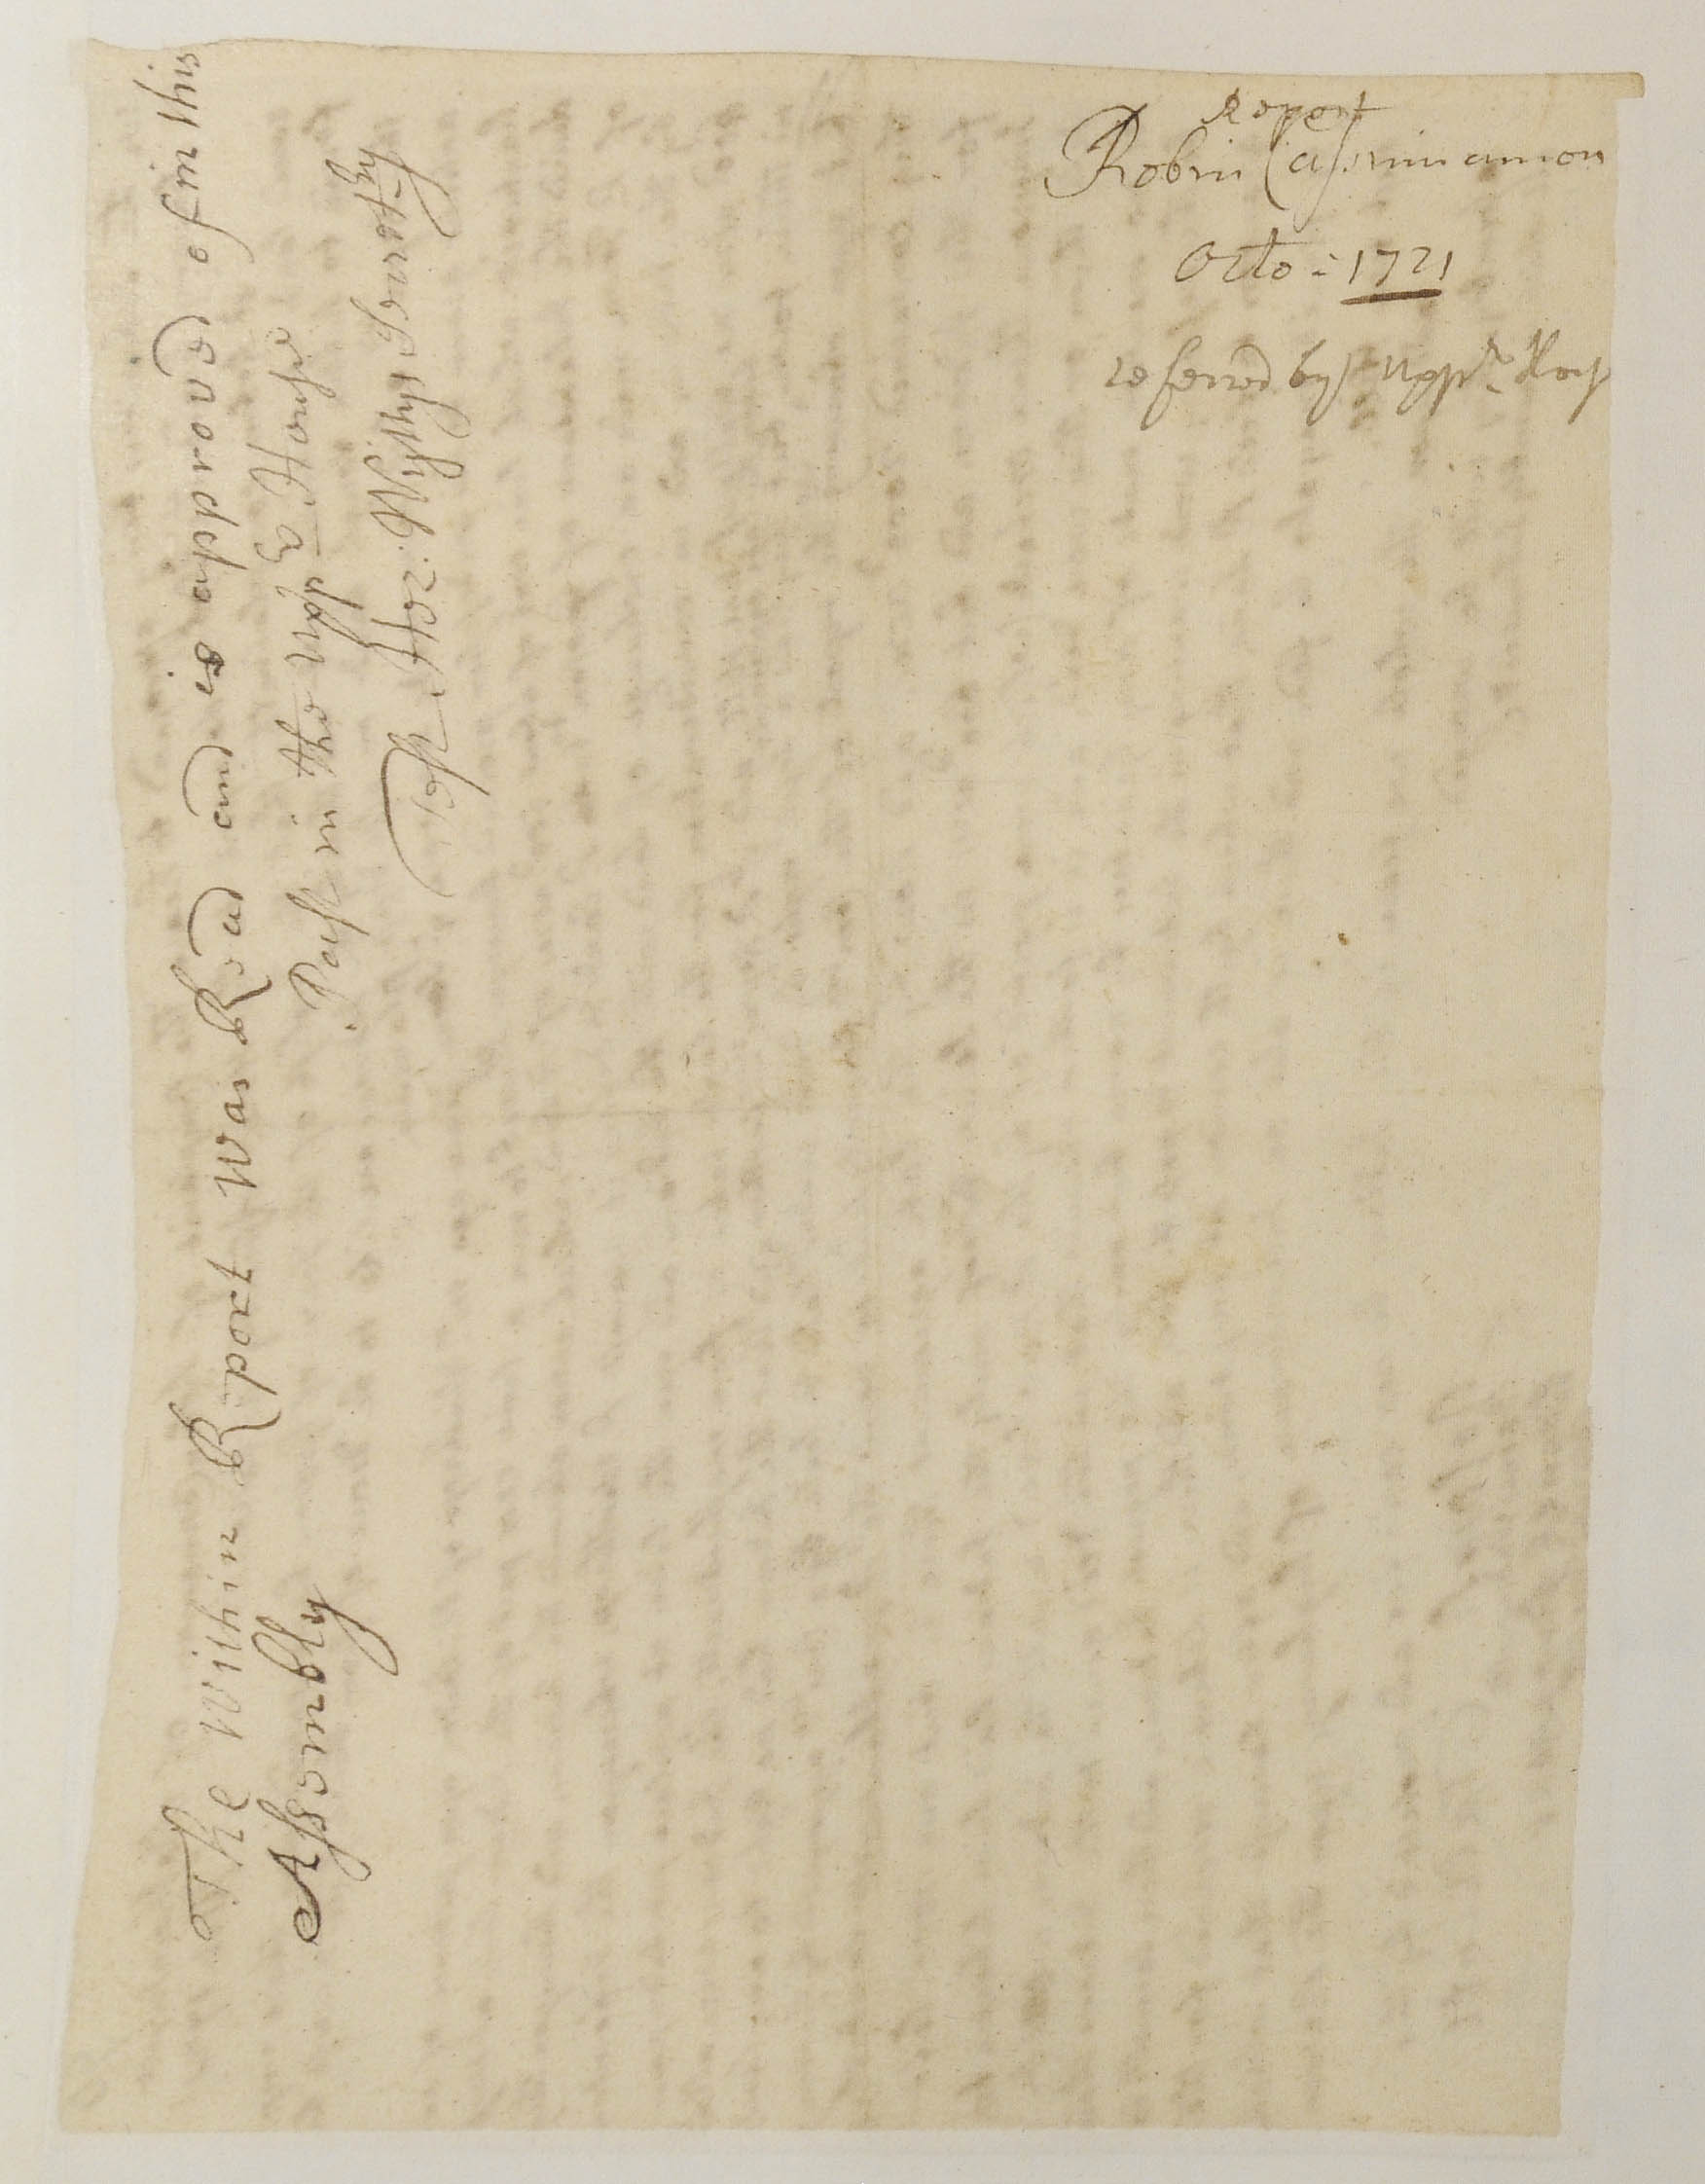 Report
Robin Cassinnamon
Octo: 1721
referred by uppr. Hous
The within Report was Read and is approved of in this
Assembly
Past in the upper House
Test Hez: Wyllys Secretry